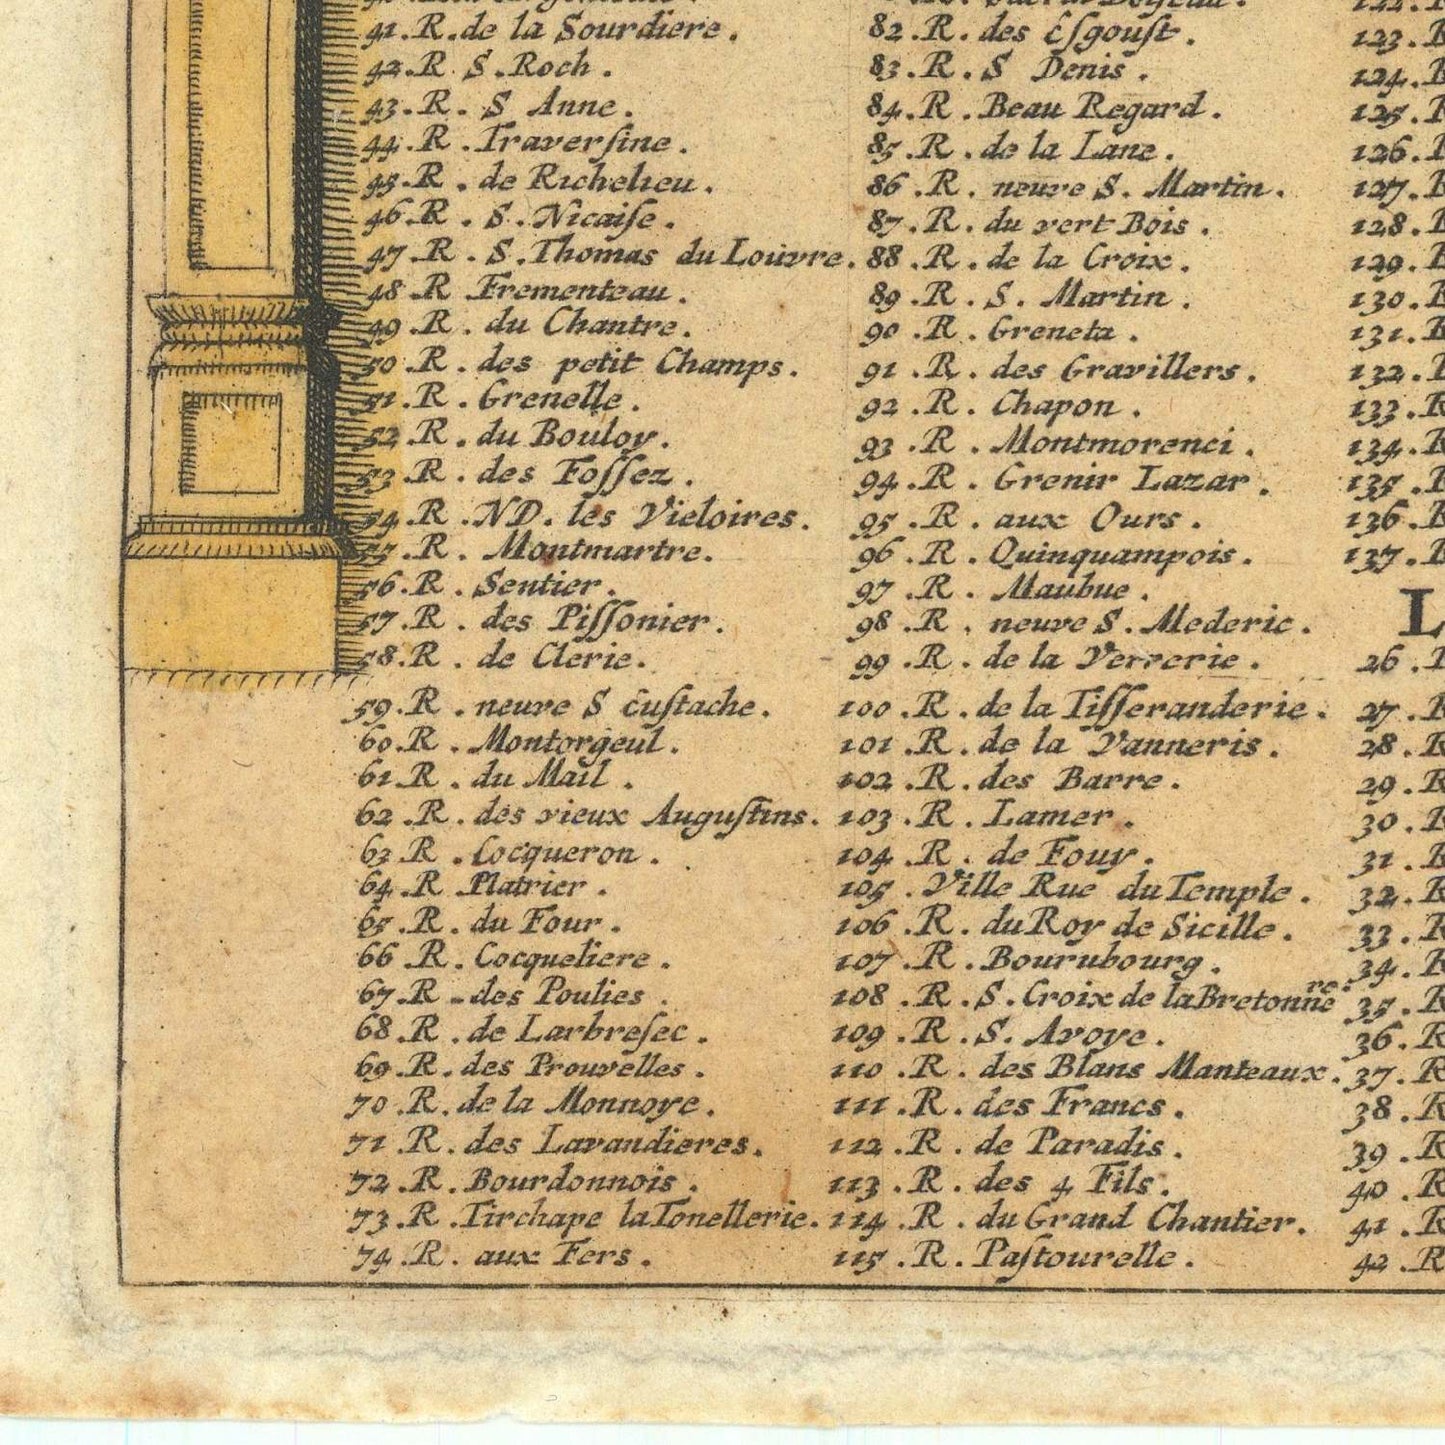 41.R.de la Sourdiere.
42.R.S.Roch.
43.R.S Anne.
44.R.Traverſine.
45.R.de Richelieu.
46.R.S.Nicaiſe.
47.R.S.Thomas du Louvre.
48.R Frementeau.
49.R.du Chantre.
50.R.des petit Champs.
51.R.Grenelle.
52.R.du Bouloy.
53.R.des Foſſez.
54.R.ND.les Vieloires.
55.R.Montmartre.
56.R.Sentier.
57.R.des Piſſonier.
58.R.de Clerie.
59.R.neuve S Euſtache.
60.R.Montorgeul.
61.R.du Mail.
62.R.des vieux Auguſtins.
63.R.Cocqueron.
64.R Platrier.
65.R.du Four.
66.R.Cocqueliere.
67.R.des Poulies.
68.R.de Larbreſec.
69.R.des Prouvelles.
70.R.de la Monnoye.
71.R.des Lavandieres.
72.R.Bourdonnois.
73.R.Tirchape la Tonellerie.
74.R.aux Fers.
82.R.des Eſgouſt.
83.R.S Denis.
84.R.Beau Regard.
85.R.de la Lane.
86.R.neuve S.Martin.
87.R.du vert Bois.
88.R.de la Croix.
89.R.S.Martin.
90.R.Greneta.
91.R.des Gravillers.
92.R.Chapon.
93.R.Montmorenci.
94.R.Grenir Lazar.
95.R.aux Ours.
96.R.Quinquampois.
97.R.Maubue.
98.R.neuve S.Mederic.
99.R.de la Verrerie.
100.R.de la Tiſſeranderie.
101.R.de la Vanneris.
102.R.des Barre.
103.R.Lamer.
104.R.de Fouy.
105.Ville Rue du Temple.
106.R.du Roy de Sicille.
107.R.Bourubourg.
108.R.S.Croix de la Bretonnere.
109.R.S.Avoye.
110.R.des Blans Manteaux.
111.R.des Francs.
112.R.de Paradis.
113.R.des 4 Fils.
114.R.du Grand Chantier.
115.R.Paſtourelle.
123.R
124.R
125.R
126.R
127.R
128.R
129.R
130.R
131.R
132.R
133.R
134.R
135.R
136.R
137.R
L
26.
27.R
28.R
29.R
30.R
31.R
32.R
33.R
34.R
35.R
36.R
37.R
38.R
39.R
40.R
41.R
42.R